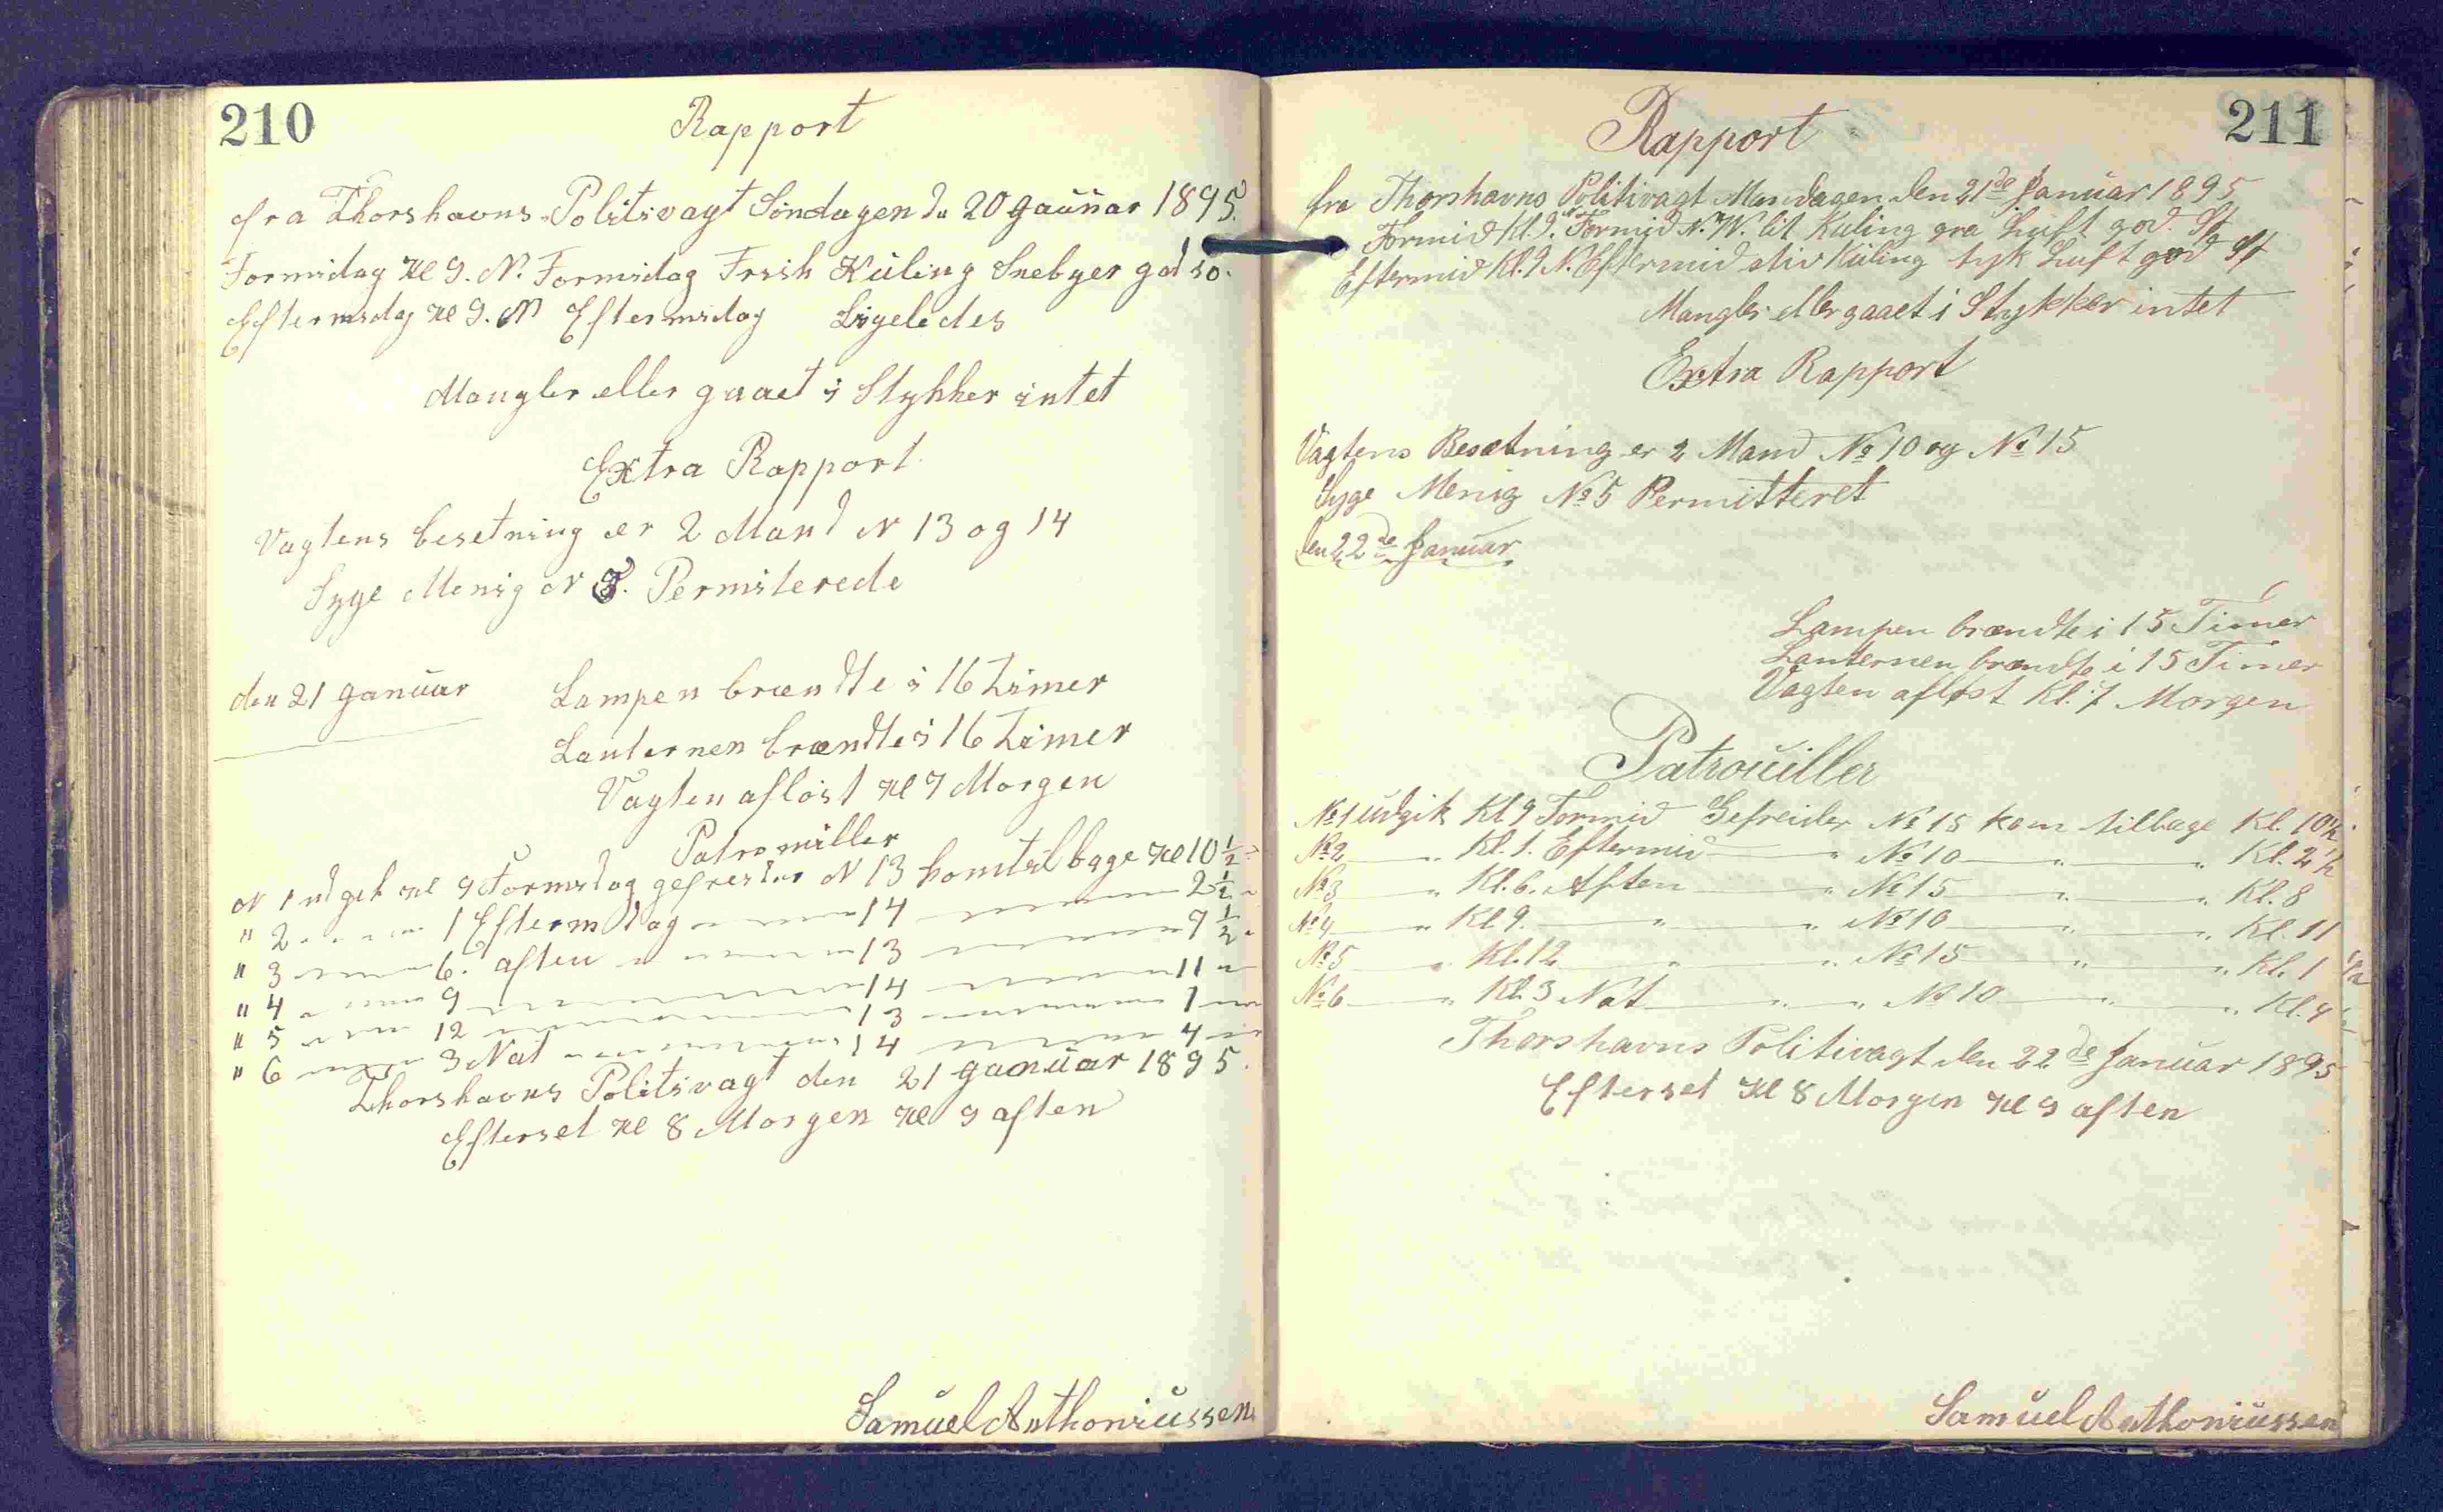 210
Rapport
fra Thorshavns Politivagt Søndagen d 20 Januar 1895.
Formidag Kl 9. N. Formidag Frisk Kuling Snebyer god so.
Eftermidag Kl 9. N Eftermidag Ligeledes
Mangler eller gaaet i Stykker intet
Extra Rapport
Vagtens besetning er 2 Mand N 13 og 14
Syge Menig N 5. Permiterede
den 21 Januar
Lampen brændte i 16 Timer
Lanternen brændte i 16 Timer
Vagten afløst Kl 7 Morgen
Patrouiller
N 1 udgik Kl 9 Formidag gefreider N 13 kom tilbage Kl 10 1/2
" 2 " " " 1 Eftermidag " " 14 " " 2 1/2 "
" 3 " " 6. aften " " 13 " " 7 1/2 "
" 4 " " 9 " " 14 " " 11 "
" 5 " " 12 " " 13 " " 1 "
" 6 " " 3 Nat " " 14 " " 4 "
Thorshavns Politivagt den 21 Januar 1895.
Efterset Kl 8 Morgen Kl 9 aften
Samuel Anthoniussen
211
Rapport
fra Thorshavns Politivagt Mandagen den 21de Januar 1895
Formid Kl. 9. Formid N.W. lit Kuling gra Luft god. St
Eftermid Kl. 9 N. Eftermid stiv Kuling tyk Luft god St
Mangler eller gaaet i Stykker intet
Extra Rapport
Vagtens Besætning er 2 Mand No 10 og No 15
Syge Menig No 5 Permitteret
den 22de Januar
Lampen brændte i 15 Timer
Lanternen brændte i 15 Timer
Vagten afløst Kl. 7 Morgen
Patrouiller
No 1 udgik Kl 9 Formid Gefreider No 15 kom tilbage Kl. 10 1/2.
No 2 " Kl. 1. Eftermid " No 10 " " Kl. 2 1/2
No 3 " Kl. 6. Aften " No 15 " " Kl. 8
No 4 " Kl 9. " " No 10 " " Kl. 11
No 5 " Kl. 12 " " No 15 " " Kl. 1 1/2
No 6 " Kl. 3 Nat " " No 10 " " Kl. 4 1/2
Thorshavns Politivagt den 22de Januar 1895
Efterset Kl 8 Morgen Kl 9 aften
Samuel Anthoniussen